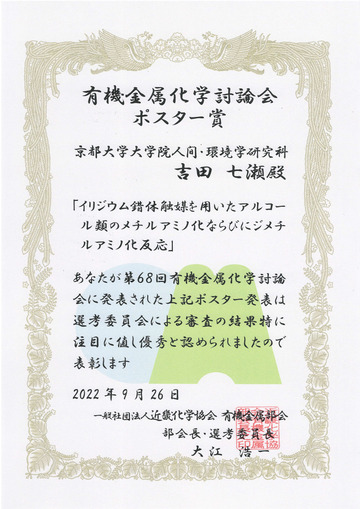 有機金属化学討論会
ポスター賞
京都大学大学院人間・環境学研究科
吉田 七瀬殿
「イリジウム錯体触媒を用いたアルコー
ル類のメチルアミノ化ならびにジメチ
ルアミノ化反応」
あなたが第68回有機金属化学討論
会に発表された上記ポスター発表は
選考委員会による審査の結果特に
注目に値し優秀と認められましたので
表彰します
2022年9月26日
一般社団法人近畿化学協会 有機金属部会
部会長・選考委員長
大江 浩一